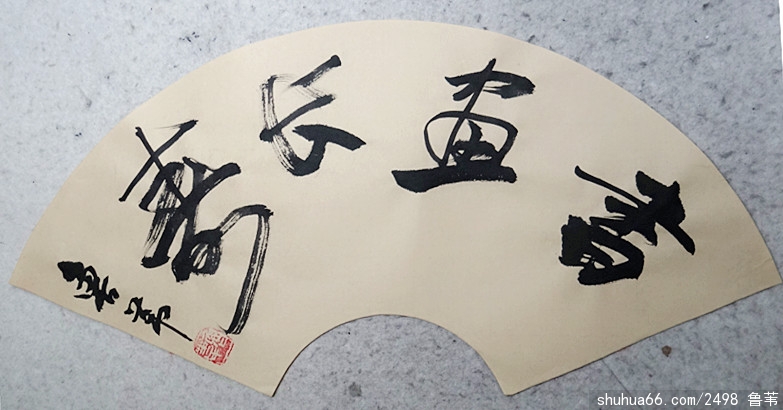 書畫长寿
鲁苇
shuhua66.com/2498 鲁苇